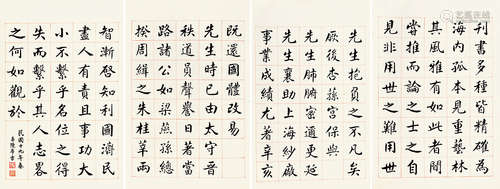 刊書多
海內孤本見重藝林
其風雅有如此者間
嘗推而論之士之自
見非用世之難用世
先生抱負之不凡矣
厥後孝孫宮保與
先生肺腑密邇更於
先生襄助上海紗廠
事業成績尤著
既還國體改易
先生時已由太守晉
秩道員聲譽日
路諸公如梁燕孫總
揆周緝之朱桂莘兩
智漸啓知利國濟民
盡人有責且事功大
小不繫乎名位之得
失而繫乎其人志畧
之何如觀於
民國十九年春